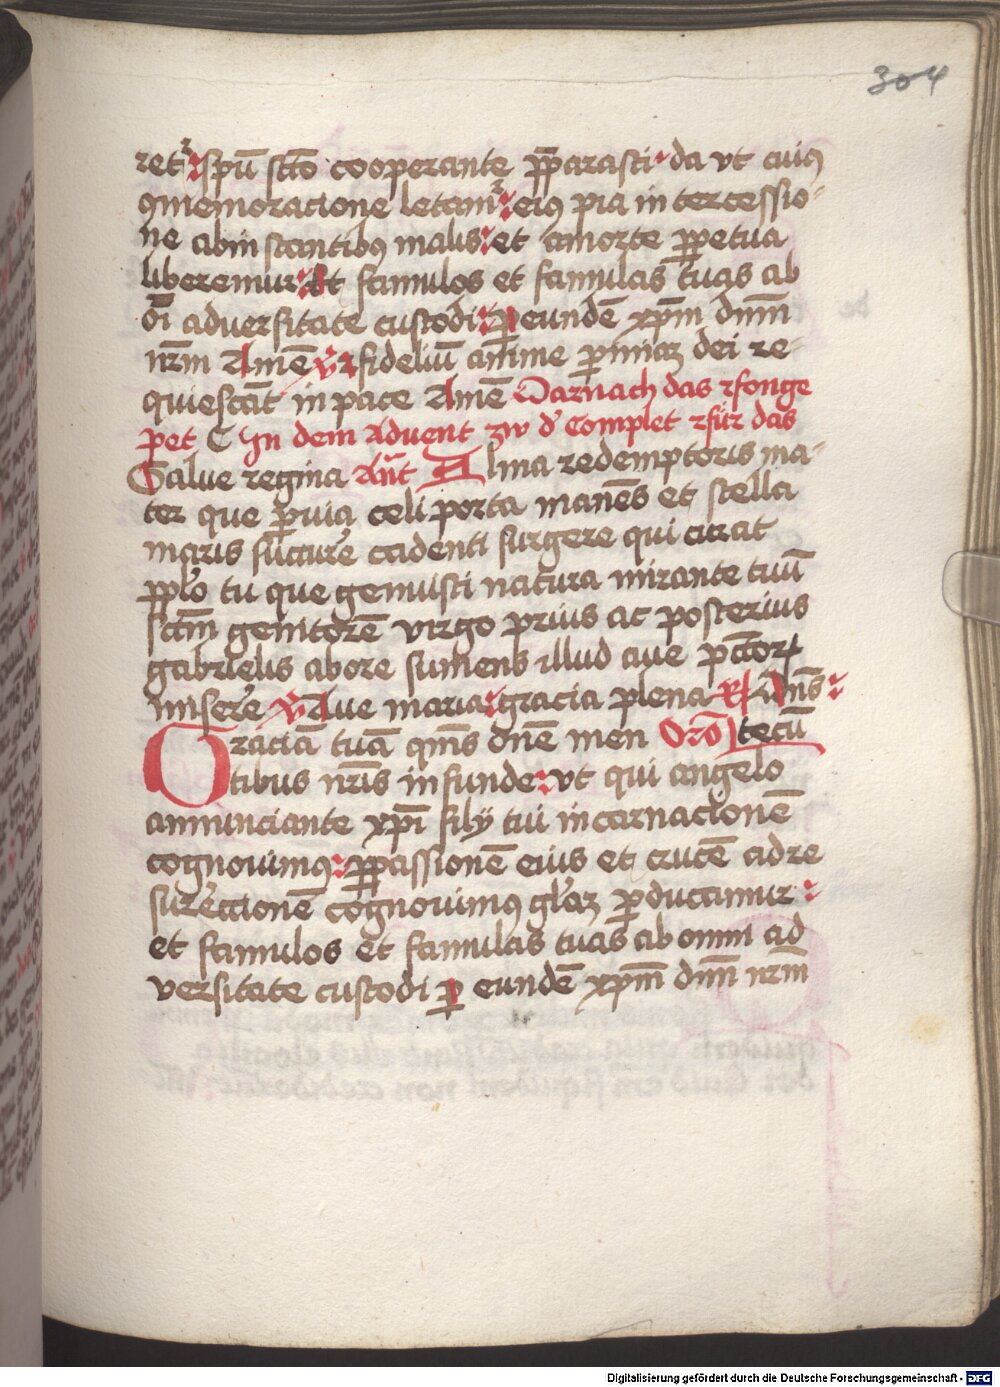 304
retꝛ spū sctō cooperante p̄parasti da vt cuiꝯ
ꝯmemoracione letamꝛ eiꝯ pia in tercessio-
ne abin stantibꝯ malis et amorte ꝑpetua
liberemur Et famulos et famulas tuas ab
oī aduersitate custodi ꝑ eundē xp̄m dn̄m
nr̄m Amē fideliū anīme ꝑ miaꝫ dei re-
quiescāt in pace Amē Darnach das
pet In dem Aduent zw d' Complet das
Salue regina Ant̄ Alma redemptoris ma-
ter que ꝑuia celi porta manēs et stella
maris succure cadenti surgere qui curat
pplo tu que genuisti natura mirante tuū
sctm̄ genitorē virgo prius ac posterius
gabrielis abore sumens illud aue pctorꝝ
misere ℣ Aue maria gracia plena ℟ dn̄s
Graciā tuā qms̄ dn̄e men Orō tecū
tibus nr̄is in funde vt qui angelo
annunciante xp̄i filij tui incarnacionē
cognouimꝯ ꝑ passionē eius et crucē ad re
surectionē cognouimꝯ gl'aꝫ ꝑducamur
et famulos et famulas tuas ab omni ad
versitate custodi ꝑ eundē xp̄m dn̄m nr̄m
Digitalisierung gefördert durch die Deutsche Forschungsgemeinschaft - DFG